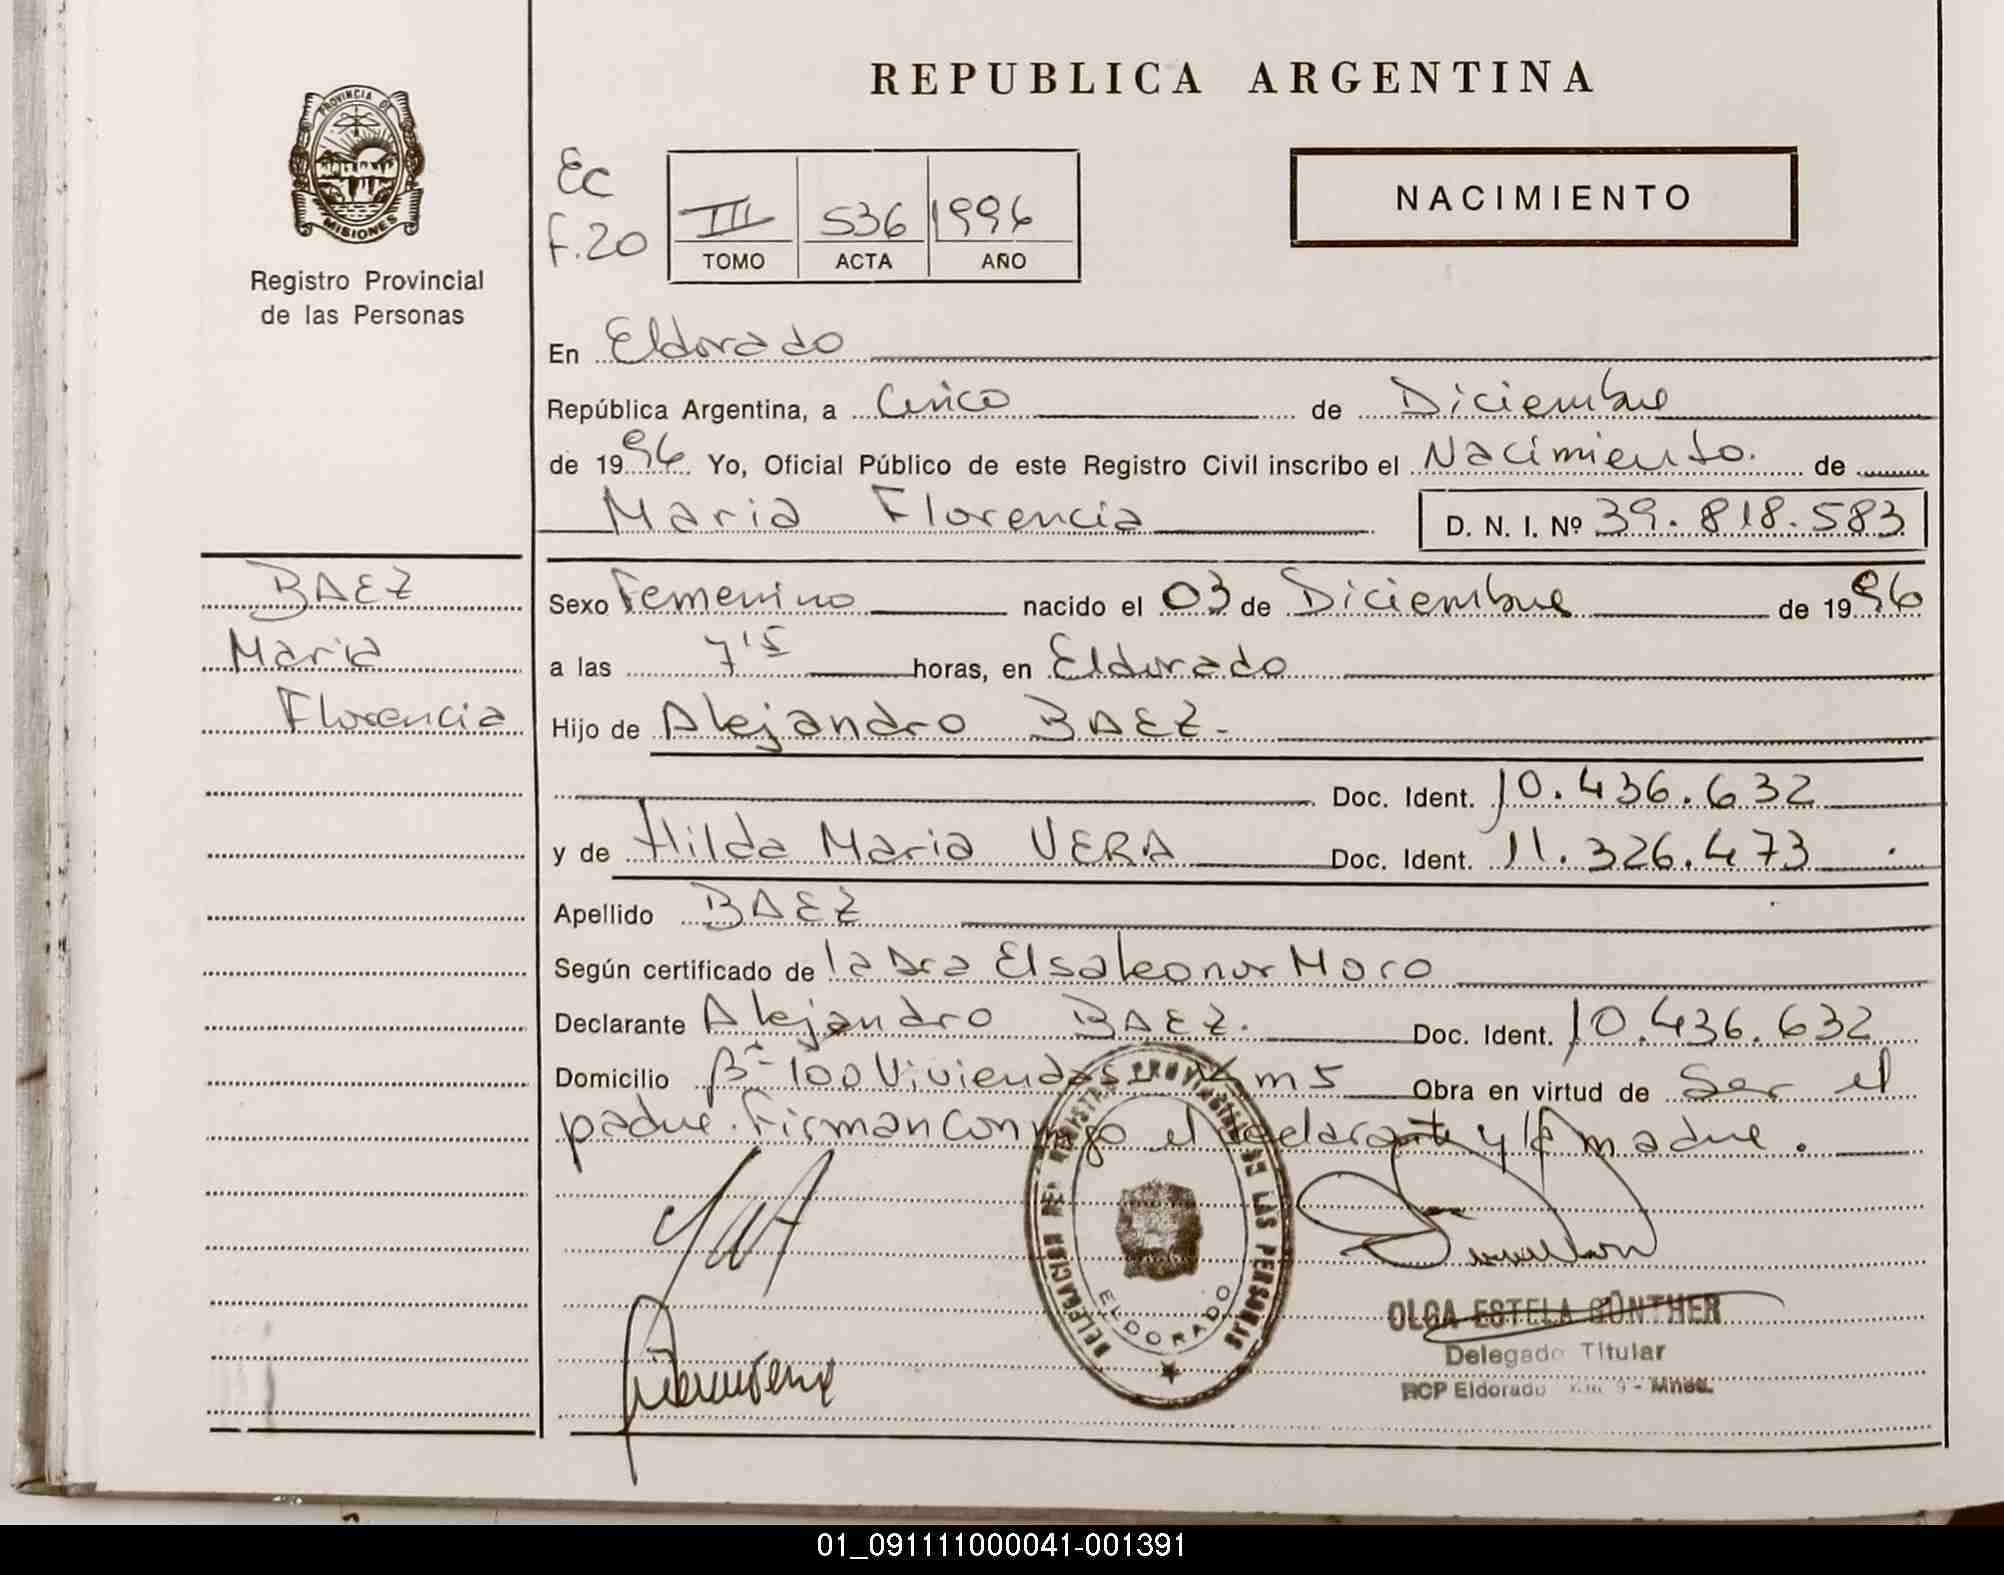 REPUBLICA ARGENTINA
PROVINCIA DE
MISIONES
Registro Provincial
de las Personas
Ec
F.20
III 536 1996
TOMO ACTA AÑO
NACIMIENTO
En Eldorado
República Argentina, a Cinco de Diciembre
de 1996 Yo, Oficial Público de este Registro Civil inscribo el Nacimiento. de
Maria Florencia D. N. I. Nº 39.818.583
BAEZ
Maria
Florencia
Sexo Femenino nacido el 03 de Diciembre de 1996
a las 7'5 horas, en Eldorado
Hijo de Alejandro BAEZ.-
Doc. Ident. 10.436.632
y de Hilda Maria VERA Doc. Ident. 11.326.473
Apellido BAEZ
Según certificado de la Dra Elsa Leonor Moro
Declarante Alejandro BAEZ. Doc. Ident. 10.436.632
Domicilio Bº 100 Viviendas Km 5 Obra en virtud de Ser el
padre. Firman conmigo el declarante y la madre.
DELEGACION DEL REGISTRO PROVINCIAL DE LAS PERSONAS
ELDORADO
OLGA ESTELA GÜNTHER
Delegado Titular
RCP Eldorado Km. 9 - Mnes.
01_091111000041-001391